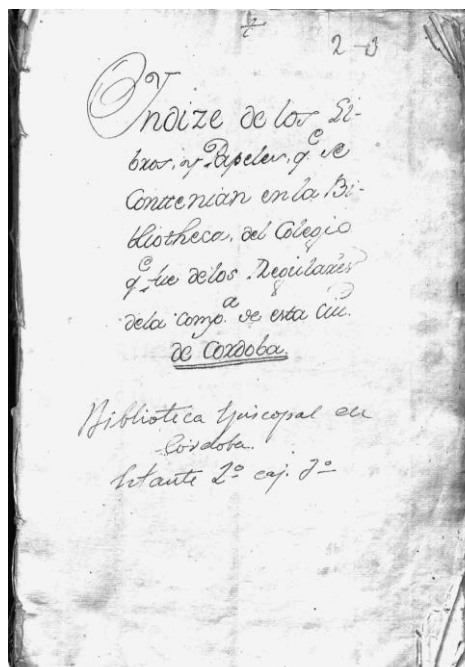 2-3
Yndize de los Li-
bros, y Papeles, q.e se
Contenian en la Bi-
bliotheca, del Colegio
q.e fue delos Regulares
dela Comp.a de esta Ciu.
de Cordoba.
Biblioteca Episcopal de
Córdoba.
Estante 2º caj. 3º